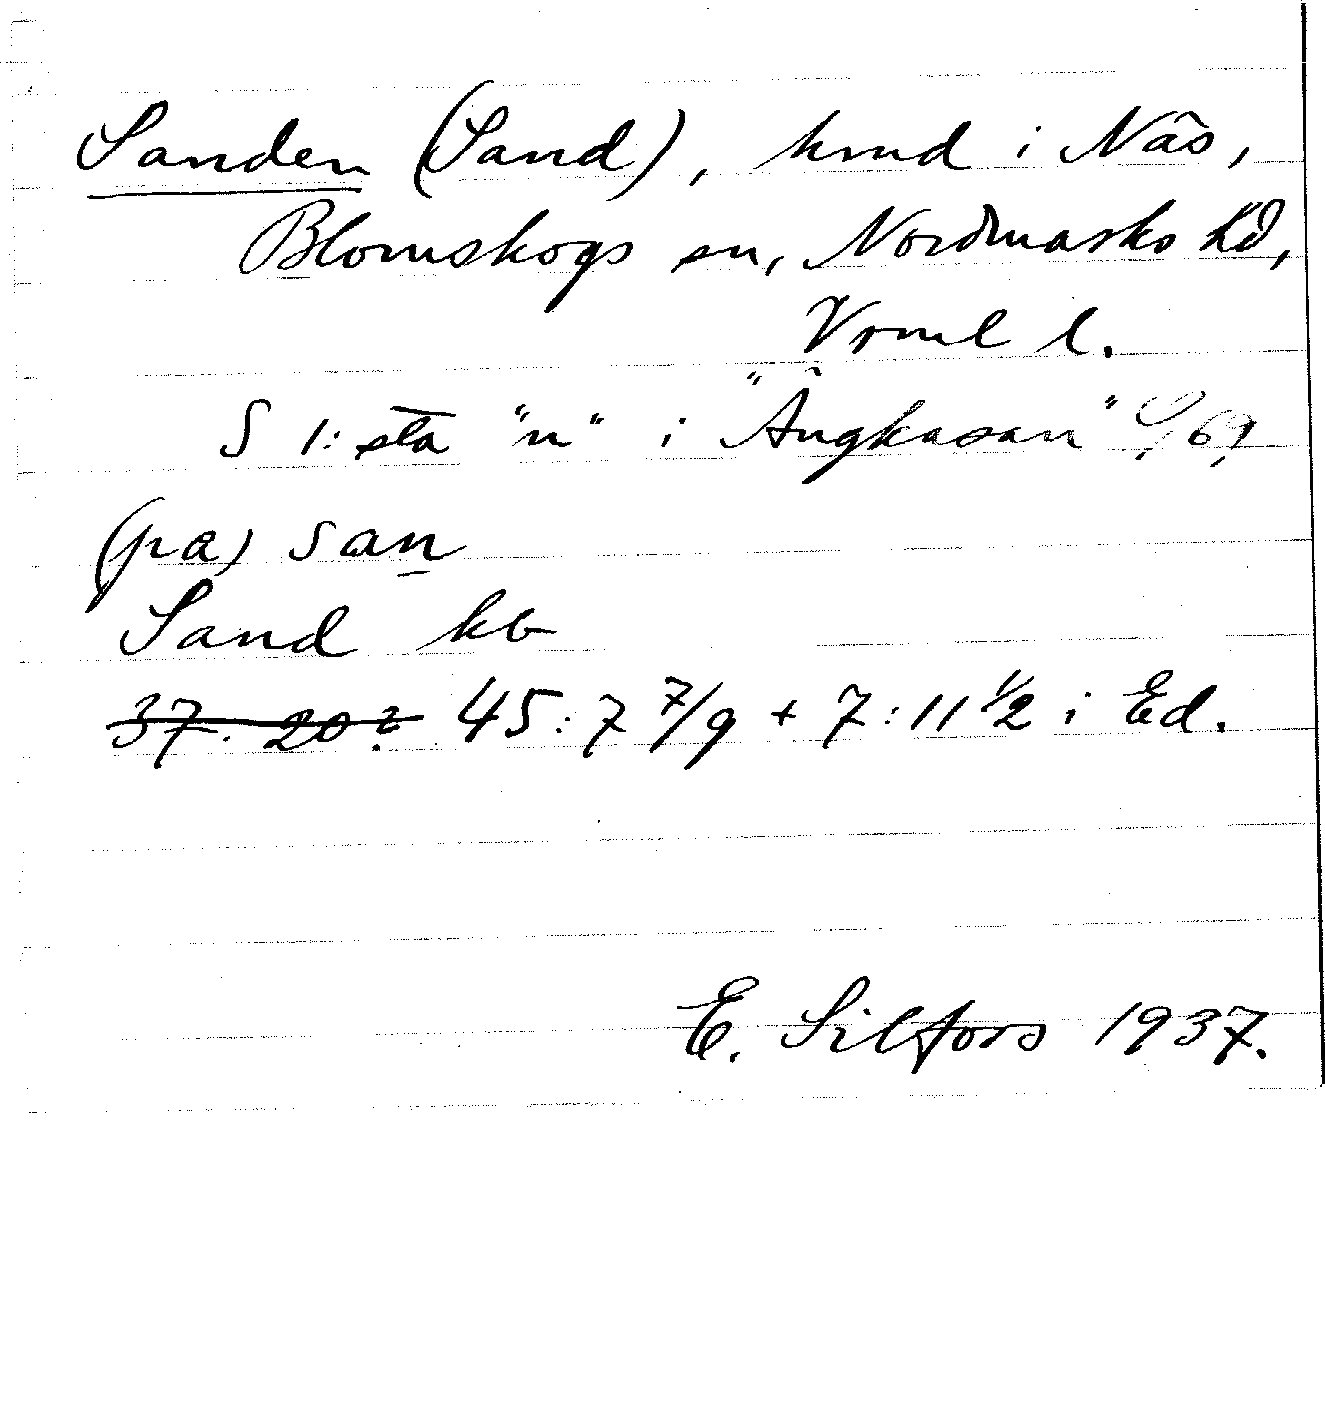 Sanden (Sand), hmd i Näs,
Blomskogs sn, Nordmarks hd,
Vrml l.
S 1: sta "n" i "Ängkasan" 69
(pa) san
Sand kb
37. 20? 45:7 7/9 + 7:11 1/2 i Ed.
E. Silfors 1937.